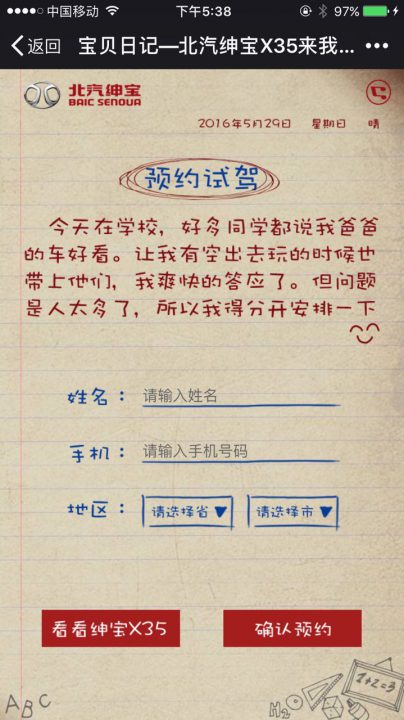 中国移动 下午5:38 97%
返回 宝贝日记—北汽绅宝X35来我...
北汽绅宝
BAIC SENOVA
2016年5月29日 星期日 晴
预约试驾
今天在学校，好多同学都说我爸爸
的车好看。让我有空出去玩的时候也
带上他们，我爽快的答应了。但问题
是人太多了，所以我得分开安排一下
姓名： 请输入姓名
手机： 请输入手机号码
地区： 请选择省 请选择市
看看绅宝X35 确认预约
1+2=3
H2O
ABC